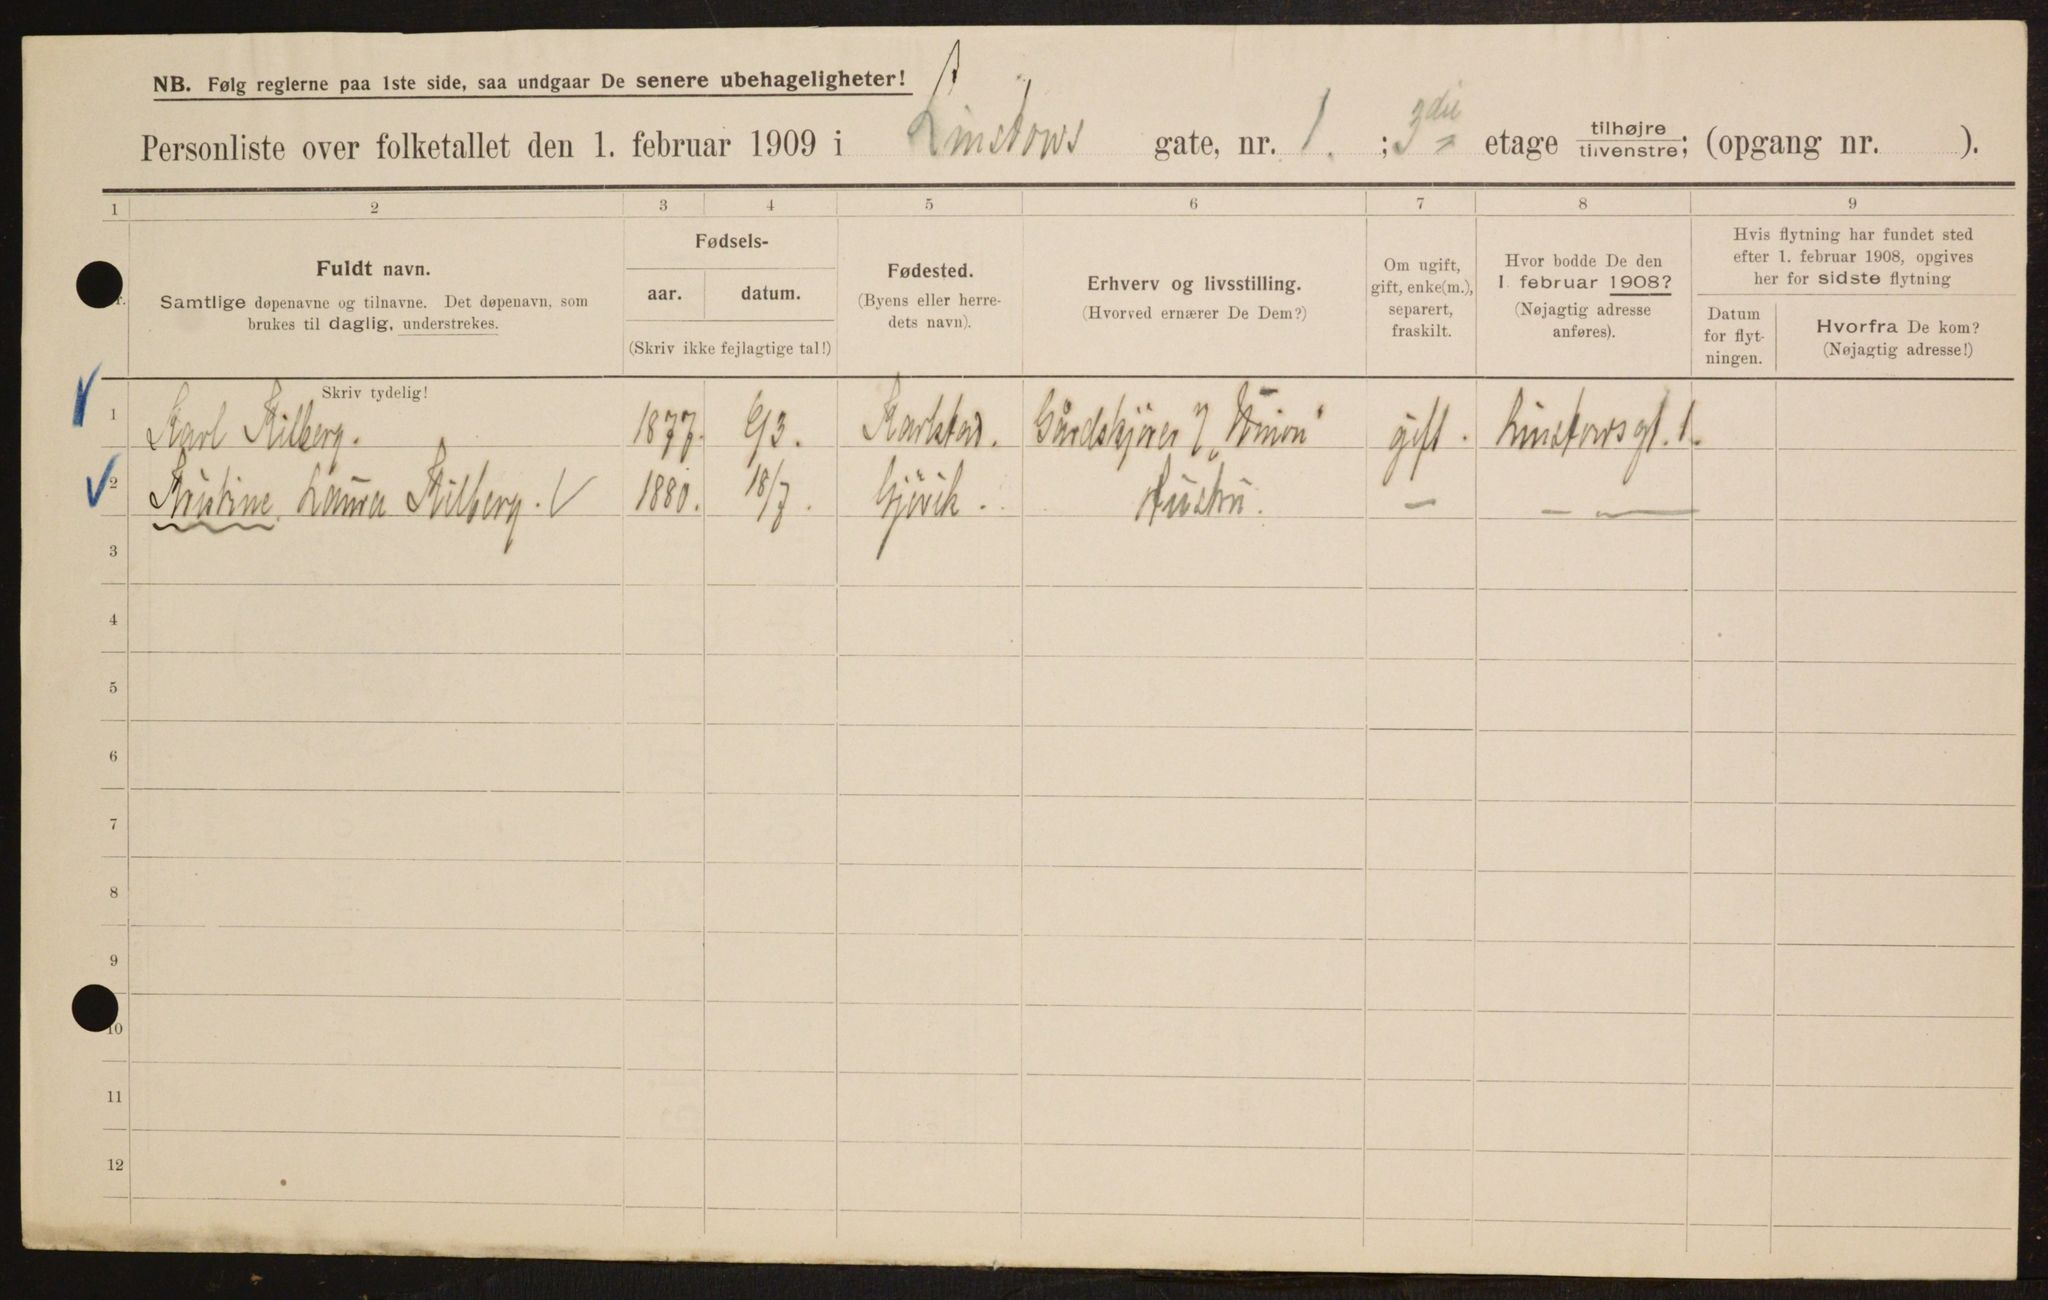 NB. Følg reglerne paa 1ste side, saa undgaar De senere ubehageligheter!
Personliste over folketallet den 1. februar 1909 i Linstows gate, nr. 1. ; 3die etage tilhøjre tilvenstre; (opgang nr. ).
1 2 3 4 5 6 7 8 9
Fuldt navn.
Samtlige døpenavne og tilnavne. Det døpenavn, som
brukes til daglig, understrekes.
Skriv tydelig!
Fødsels-
aar. datum.
(Skriv ikke fejlagtige tal!)
Fødested.
(Byens eller herre-
dets navn).
Erhverv og livsstilling.
(Hvorved ernærer De Dem?)
Om ugift,
gift, enke(m.),
separert,
fraskilt.
Hvor bodde De den
1. februar 1908?
(Nøjagtig adresse
anføres).
Hvis flytning har fundet sted
efter 1. februar 1908, opgives
her for sidste flytning
Datum
for flyt-
ningen.
Hvorfra De kom?
(Nøjagtig adresse!)
1 Karl Kilberg. 1877. 6/3. Karlstad. Gårdskjører "Union" gift. Linstowsgt. 1.
2 Kristine Laura Kilberg. 1880. 18/7. Gjøvik. Hustru. — — —
3
4
5
6
7
8
9
10
11
12